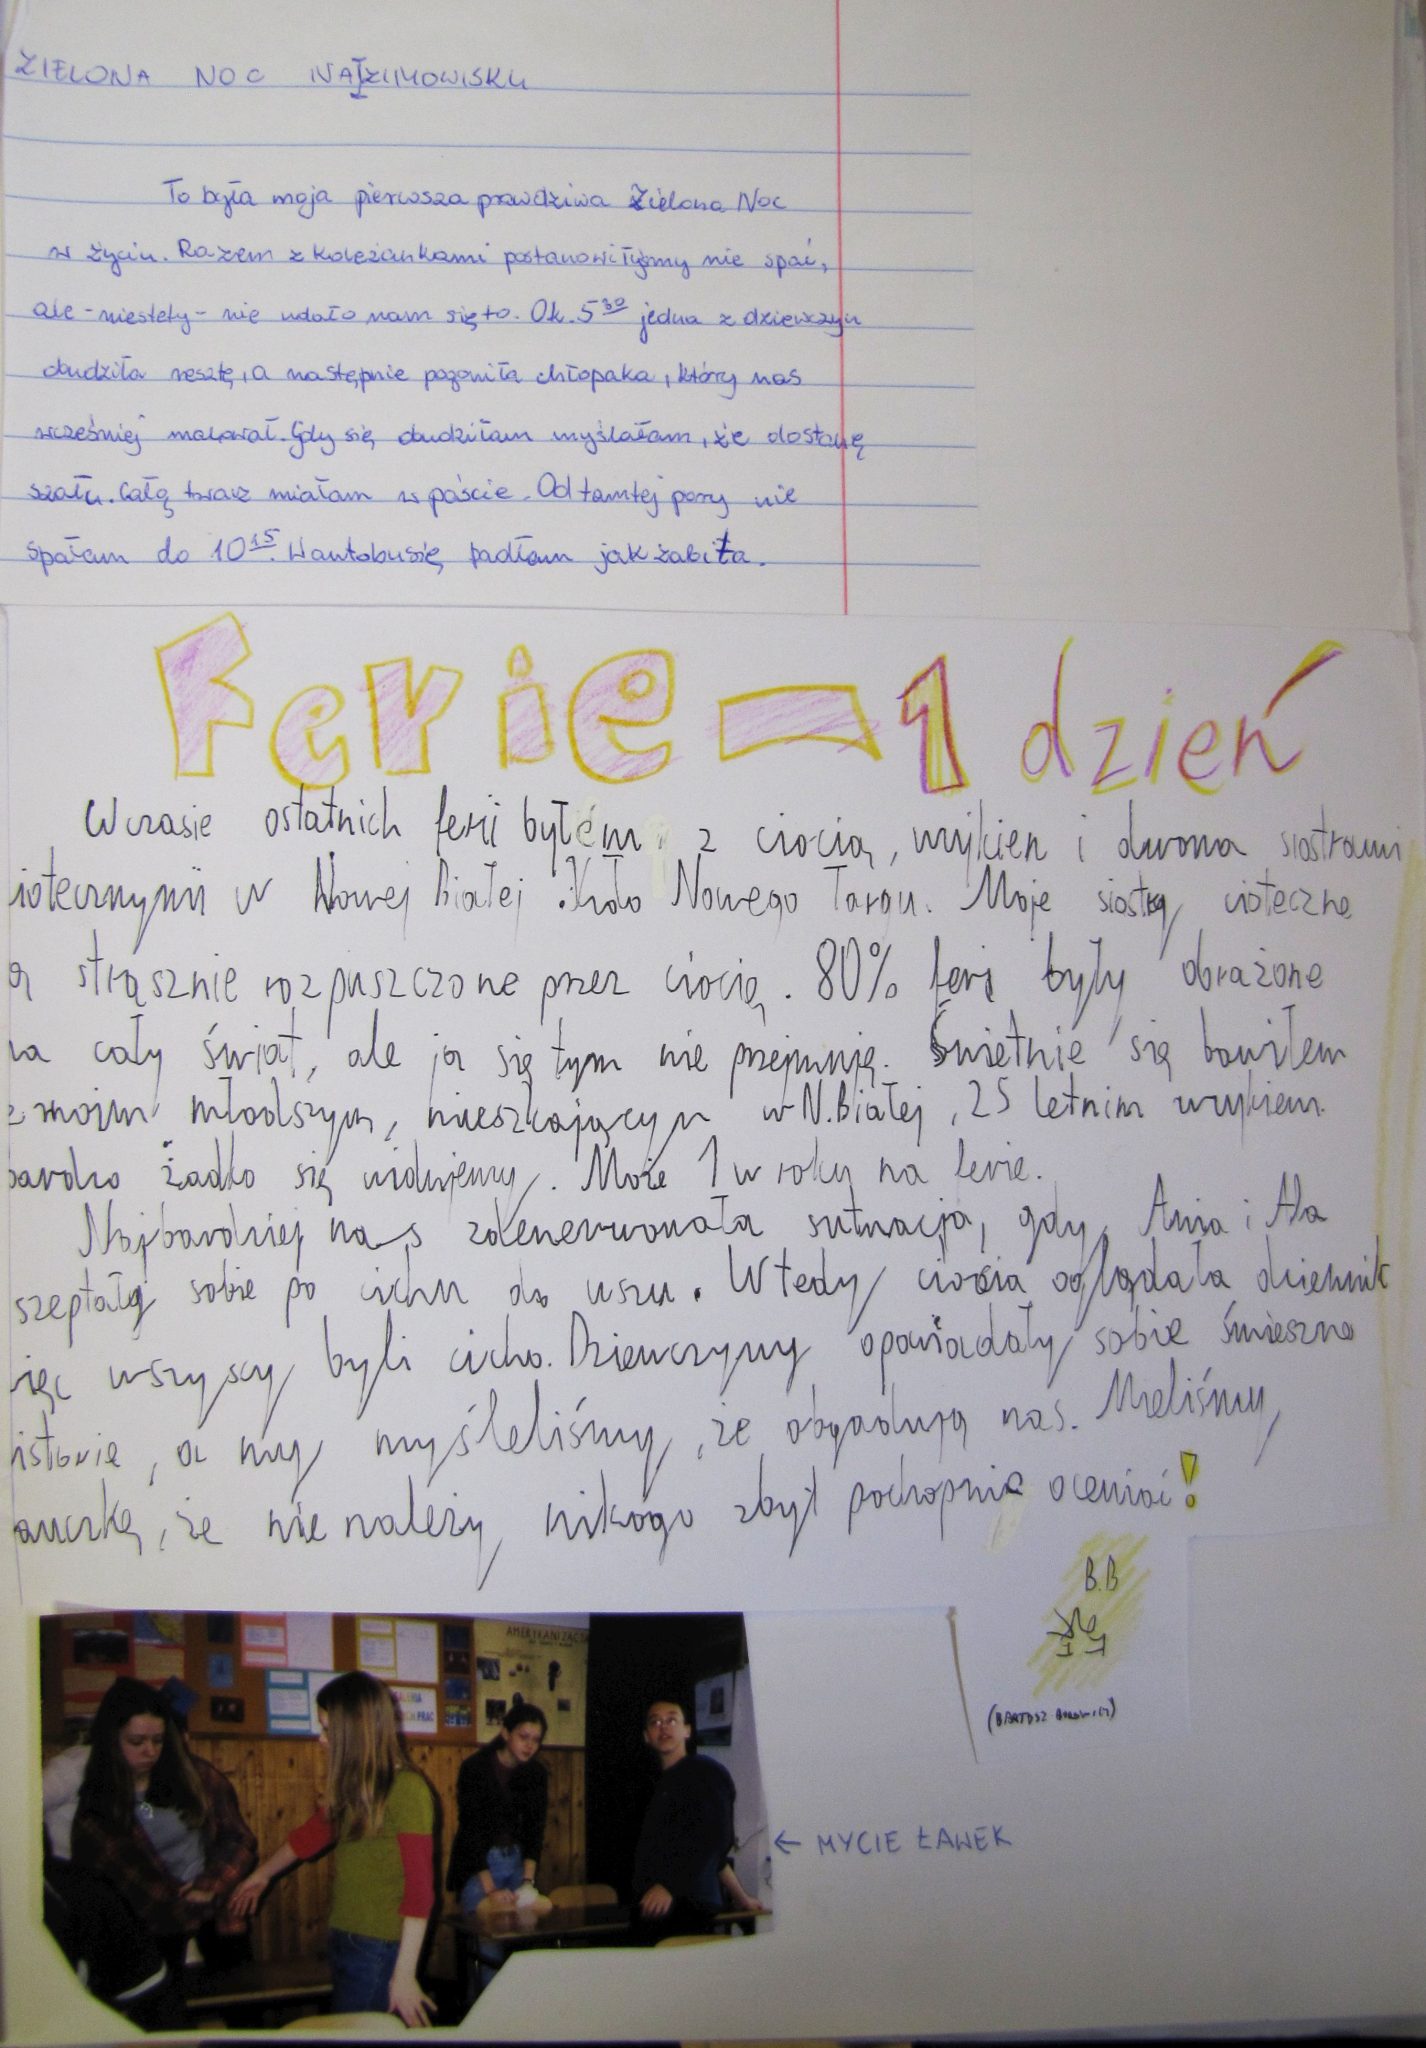 ZIELONA NOC NA ZIMOWISKU
To była moja pierwsza prawdziwa Zielona Noc
w życiu. Razem z koleżankami postanowiłyśmy nie spać,
ale - niestety - nie udało nam się to. Ok. 5³⁰ jedna z dziewczyn
obudziła resztę, a następnie pogoniła chłopaka, który nas
wcześniej malował. Gdy się obudziłam myślałam, że dostanę
szału. Całą twarz miałam w paście. Od tamtej pory nie
spałam do 10¹⁵. W autobusię padłam jak zabita.
Ferie - 1 dzień
W czasie ostatnich ferii byłem z ciocią, wujkien i dwoma siostrami
iotecznymi w Nowej Białej koło Nowego Targu. Moje siostry cioteczne
ą strasznie rozpuszczone przez ciocię. 80% ferii były obrażone
na cały świat, ale ja się tym nie przejmuję. Świetnie się bawiłem
z moim młodszym, mieszkającym w N.Białej, 25 letnim wujkiem.
bardzo żadko się widujemy. Może 1 w roku na ferie.
Najbardziej nas zdenerwowała sytuacja, gdy Ania i Ala
szeptały sobie po cichu do uszu. Wtedy ciocia oglądała dziennik
ięc wszyscy byli cicho. Dziewczyny opowiadały sobie śmieszne
istorie, a my myśleliśmy, że obgadują nas. Mieliśmy
auczkę, że nie należy nikogo zbyt pochopnie oceniać!
B.B
AMERYKANIZACJA
← MYCIE ŁAWEK